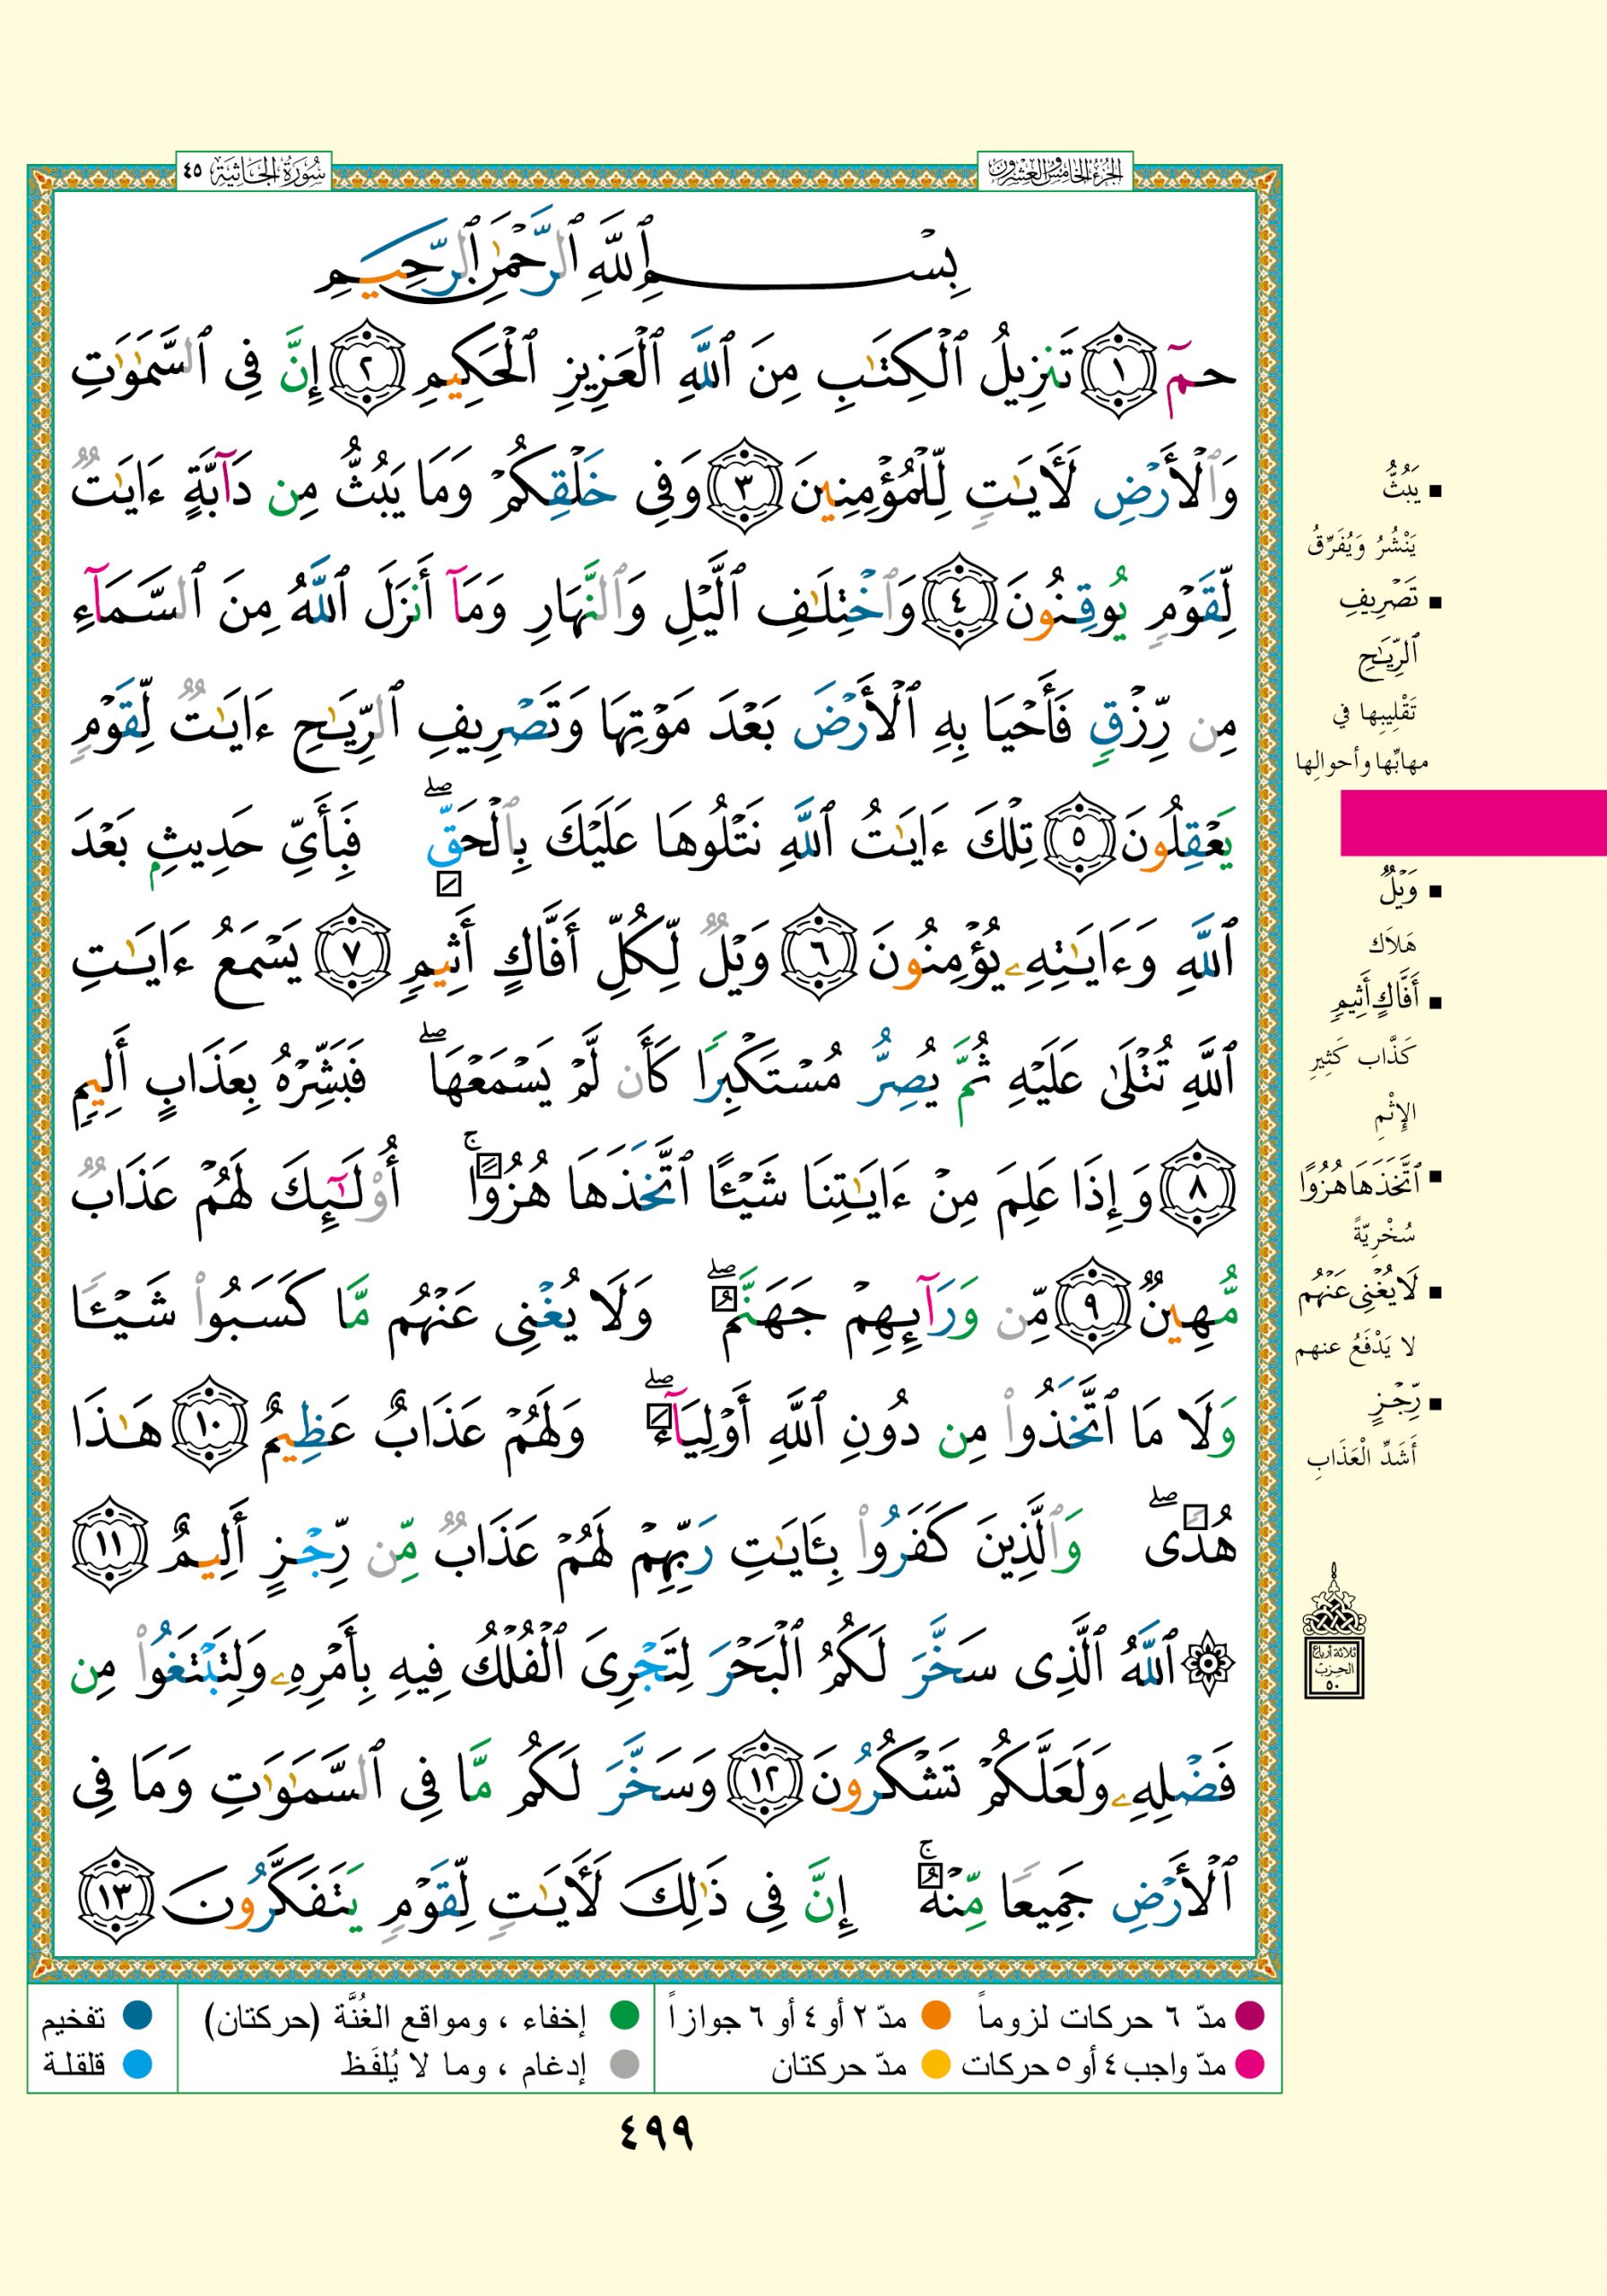 الجزء الخامس والعشرون
سورة الجاثية ٤٥
بِسْمِ ٱللَّهِ ٱلرَّحْمَٰنِ ٱلرَّحِيمِ
حمٓ ١ تَنزِيلُ ٱلْكِتَٰبِ مِنَ ٱللَّهِ ٱلْعَزِيزِ ٱلْحَكِيمِ ٢ إِنَّ فِى ٱلسَّمَٰوَٰتِ
وَٱلْأَرْضِ لَءَايَٰتٍ لِّلْمُؤْمِنِينَ ٣ وَفِى خَلْقِكُمْ وَمَا يَبُثُّ مِن دَآبَّةٍ ءَايَٰتٌ
لِّقَوْمٍ يُوقِنُونَ ٤ وَٱخْتِلَٰفِ ٱلَّيْلِ وَٱلنَّهَارِ وَمَآ أَنزَلَ ٱللَّهُ مِنَ ٱلسَّمَآءِ
مِن رِّزْقٍ فَأَحْيَا بِهِ ٱلْأَرْضَ بَعْدَ مَوْتِهَا وَتَصْرِيفِ ٱلرِّيَٰحِ ءَايَٰتٌ لِّقَوْمٍ
يَعْقِلُونَ ٥ تِلْكَ ءَايَٰتُ ٱللَّهِ نَتْلُوهَا عَلَيْكَ بِٱلْحَقِّ ۖ فَبِأَىِّ حَدِيثٍۭ بَعْدَ
ٱللَّهِ وَءَايَٰتِهِۦ يُؤْمِنُونَ ٦ وَيْلٌ لِّكُلِّ أَفَّاكٍ أَثِيمٍ ٧ يَسْمَعُ ءَايَٰتِ
ٱللَّهِ تُتْلَىٰ عَلَيْهِ ثُمَّ يُصِرُّ مُسْتَكْبِرًا كَأَن لَّمْ يَسْمَعْهَا ۖ فَبَشِّرْهُ بِعَذَابٍ أَلِيمٍ
٨ وَإِذَا عَلِمَ مِنْ ءَايَٰتِنَا شَيْـًٔا ٱتَّخَذَهَا هُزُوًا ۚ أُو۟لَٰٓئِكَ لَهُمْ عَذَابٌ
مُّهِينٌ ٩ مِّن وَرَآئِهِمْ جَهَنَّمُ ۖ وَلَا يُغْنِى عَنْهُم مَّا كَسَبُوا۟ شَيْـًٔا
وَلَا مَا ٱتَّخَذُوا۟ مِن دُونِ ٱللَّهِ أَوْلِيَآءَ ۖ وَلَهُمْ عَذَابٌ عَظِيمٌ ١٠ هَٰذَا
هُدًى ۖ وَٱلَّذِينَ كَفَرُوا۟ بِـَٔايَٰتِ رَبِّهِمْ لَهُمْ عَذَابٌ مِّن رِّجْزٍ أَلِيمٌ ١١
۞ ٱللَّهُ ٱلَّذِى سَخَّرَ لَكُمُ ٱلْبَحْرَ لِتَجْرِىَ ٱلْفُلْكُ فِيهِ بِأَمْرِهِۦ وَلِتَبْتَغُوا۟ مِن
فَضْلِهِۦ وَلَعَلَّكُمْ تَشْكُرُونَ ١٢ وَسَخَّرَ لَكُم مَّا فِى ٱلسَّمَٰوَٰتِ وَمَا فِى
ٱلْأَرْضِ جَمِيعًا مِّنْهُ ۚ إِنَّ فِى ذَٰلِكَ لَءَايَٰتٍ لِّقَوْمٍ يَتَفَكَّرُونَ ١٣
يَبُثُّ
يَنْشُرُ وَيُفَرِّقُ
تَصْرِيفِ
ٱلرِّيَٰحِ
تَقْلِيبِها في
مهابِّها وأحوالِها
وَيْلٌ
هَلاَك
أَفَّاكٍ أَثِيمٍ
كَذَّاب كَثِيرِ
الإِثْمِ
ٱتَّخَذَهَا هُزُوًا
سُخْرِيّةً
لَا يُغْنِى عَنْهُم
لا يَدْفَعُ عنهم
رِّجْزٍ
أَشَدِّ الْعَذَابِ
ثلاثة أرباع
الحزب
٥٠
مدّ ٦ حركات لزوماً
مدّ ٢ أو ٤ أو ٦ جوازاً
إخفاء ، ومواقع الغُنَّة (حركتان)
تفخيم
مدّ واجب ٤ أو ٥ حركات
مدّ حركتان
إدغام ، وما لا يُلفَظ
قلقلة
٤٩٩